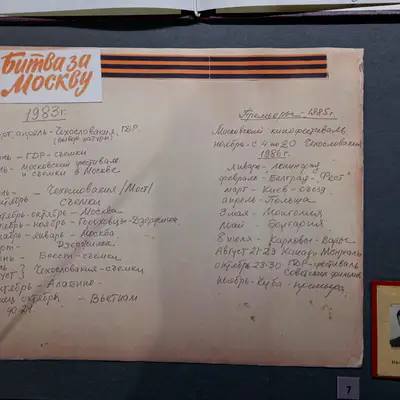 Битва за
Москву
1983г.
апрель - Чехословакия, ГДР
(выбор натуры)
- ГДР - съемки
- Московский фестиваль
и съемки в Москве
- Чехословакия /Мост/
съемки
октябрь - Москва
- ноябрь - Гороховец - Дзержинск
январь - Москва
Дзержинск
- Брест - съемки
} Чехословакия - съемки
- Алабино
октябрь - Вьетнам
до 21
Премьеры - 1985г.
Московский кинофестиваль
ноябрь - с 4 по 20 Чехословакия
1986г.
январь - Ленинград
февраль - Белград - Фест
март - Киев - съезд
апрель - Польша
3 мая - Монголия
май - Болгария
8 июля - Карловы-Вары
Август 21-29 Канада Монреаль
октябрь 28-30 ГДР - фестиваль
Советских фильмов
ноябрь - Куба - премьера
7